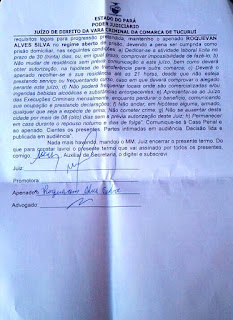 ESTADO DO PARÁ
PODER JUDICIÁRIO
JUÍZO DE DIREITO DA VARA CRIMINAL DA COMARCA DE TUCURUÍ
requisitos legais para progressão prisional, mantenho o apenado ROQUEVAN
ALVES SILVA no regime aberto de prisão, devendo a pena ser cumprida como
prisão domiciliar, nas seguintes condições: a) Dedicar-se a atividade laboral lícita no
prazo de 30 (trinta) dias, ou, em igual prazo, comprovar impossibilidade de fazê-lo; b)
Não mudar de residência sem prévia comunicação a este juízo, bem como deverá
obter autorização, na hipótese de transferência para outra comarca; c) Deverá o
apenado recolher-se à sua residência até as 21 horas, desde que não esteja
prestando serviço ou frequentando culto, caso em que deverá comprovar o alegado
perante este juízo; d) Não poderá frequentar locais onde são comercializadas e/ou
ingeridas bebidas alcoólicas e/ou substâncias entorpecentes; e) Apresentar-se ao Juízo
das Execuções Criminais mensalmente, enquanto perdurar o benefício, comunicando
sua ocupação e prestando declarações; f) Não andar, em hipótese alguma, armado,
qualquer que seja a espécie de arma. Não cometer crime; g) Não se ausentar desta
cidade por mais de 08 (oito) dias sem a prévia autorização deste Juiz; h) Permanecer
em casa durante o repouso noturno e dias de folga". Comunique-se à Casa Penal e
ao apenado. Cientes os presentes. Partes intimadas em audiência. Decisão lida e
publicada em audiência"
Nada mais havendo, mandou o MM. Juiz encerrar o presente termo. Do
que para constar lavrei o presente termo que vai assinado por todos os presentes,
comigo, Auxiliar de Secretaria, o digitei e subscrevi.
Juiz:
Promotora:
Apenado:
Advogado: